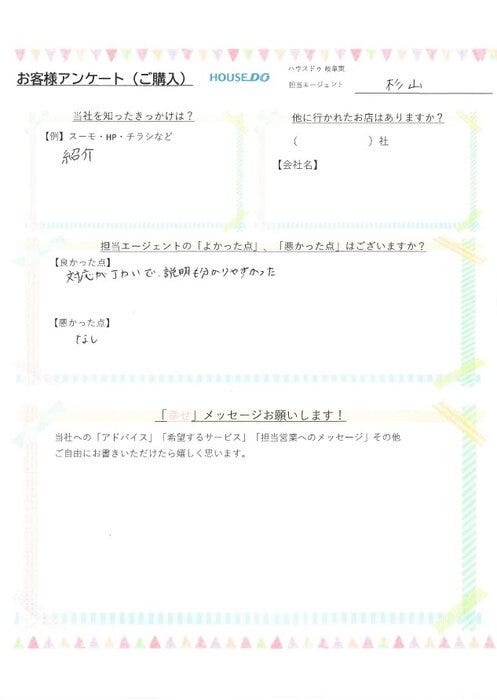 お客様アンケート（ご購入）
HOUSEDO
ハウスドゥ 岐阜東
担当エージェント 杉山
当社を知ったきっかけは？
【例】スーモ・HP・チラシなど
紹介
他に行かれたお店はありますか？
（ ）社
【会社名】
担当エージェントの「よかった点」、「悪かった点」はございますか？
【良かった点】
対応が丁ねいで、説明も分かりやすかった
【悪かった点】
なし
「幸せ」メッセージお願いします！
当社への「アドバイス」「希望するサービス」「担当営業へのメッセージ」その他
ご自由にお書きいただけたら嬉しく思います。